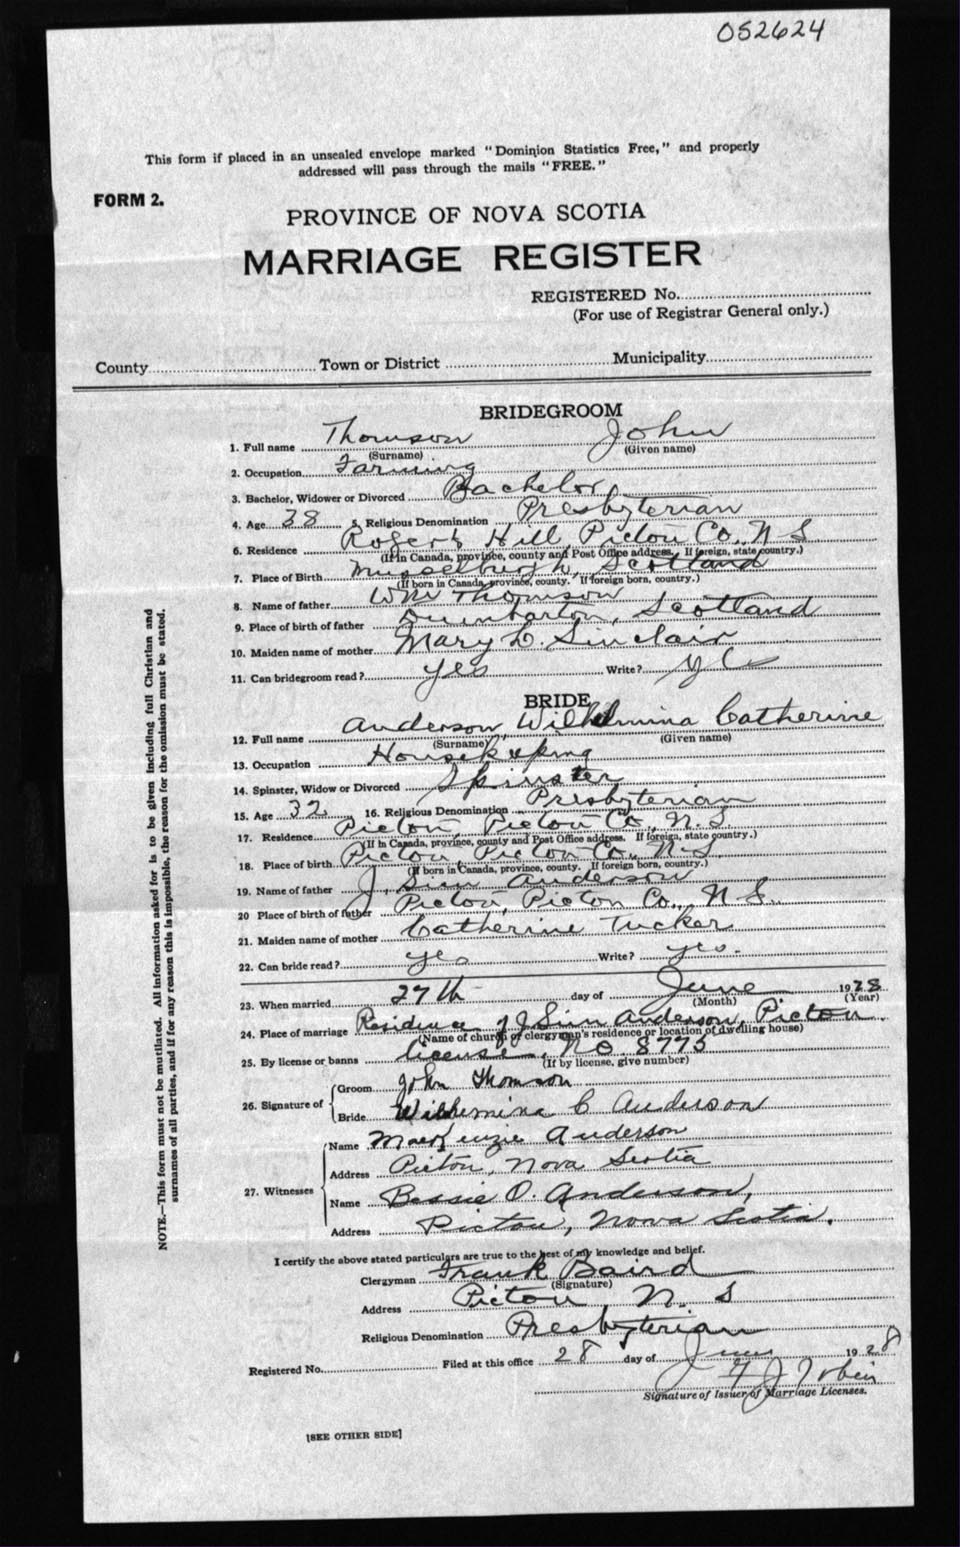 052624
This form if placed in an unsealed envelope marked "Dominion Statistics Free," and properly
addressed will pass through the mails "FREE."
FORM 2.
PROVINCE OF NOVA SCOTIA
MARRIAGE REGISTER
REGISTERED No.
(For use of Registrar General only.)
County Town or District Municipality
BRIDEGROOM
1. Full name Thomson John
(Surname) (Given name)
2. Occupation Farming
3. Bachelor, Widower or Divorced Bachelor
4. Age 38 5. Religious Denomination Presbyterian
6. Residence Rogers Hill Pictou Co., N S
(If in Canada, province, county and Post Office address. If foreign, state country.)
7. Place of Birth Musselburgh, Scotland
(If born in Canada, province, county. If foreign born, country.)
8. Name of father Wm Thomson
9. Place of birth of father Dumbarton, Scotland
10. Maiden name of mother Mary D. Sinclair
11. Can bridegroom read? yes Write? yes
BRIDE
12. Full name Anderson, Wilhelmina Catherine
(Surname) (Given name)
13. Occupation Housekeeping
14. Spinster, Widow or Divorced Spinster
15. Age 32 16. Religious Denomination Presbyterian
17. Residence Pictou, Pictou Co., N.S
(If in Canada, province, county and Post Office address. If foreign, state country.)
18. Place of birth Pictou, Pictou Co., N.S
(If born in Canada, province, county. If foreign born, country.)
19. Name of father J. Sim Anderson
20 Place of birth of father Pictou, Pictou Co., N S.
21. Maiden name of mother Catherine Tucker
22. Can bride read? yes Write? yes.
23. When married 27th day of June 1928
(Month) (Year)
24. Place of marriage Residence of J Sim Anderson, Pictou
(Name of church of clergyman's residence or location of dwelling house)
25. By license or banns license, N O 8775
(If by license, give number)
26. Signature of
Groom John Thomson
Bride Wilhemina C Anderson
27. Witnesses
Name MacKenzie Anderson
Address Pictou, Nova Scotia
Name Bessie O. Anderson,
Address Pictou, Nova Scotia.
I certify the above stated particulars are true to the best of my knowledge and belief.
Clergyman Frank Baird
(Signature)
Address Pictou N. S
Religious Denomination Presbyterian
Registered No. Filed at this office 28 day of June 1928
Signature of Issuer of Marriage Licenses.
[SEE OTHER SIDE]
NOTE.—This form must not be mutilated. All information asked for is to be given including full Christian and
surnames of all parties, and if for any reason this is impossible, the reason for the omission must be stated.